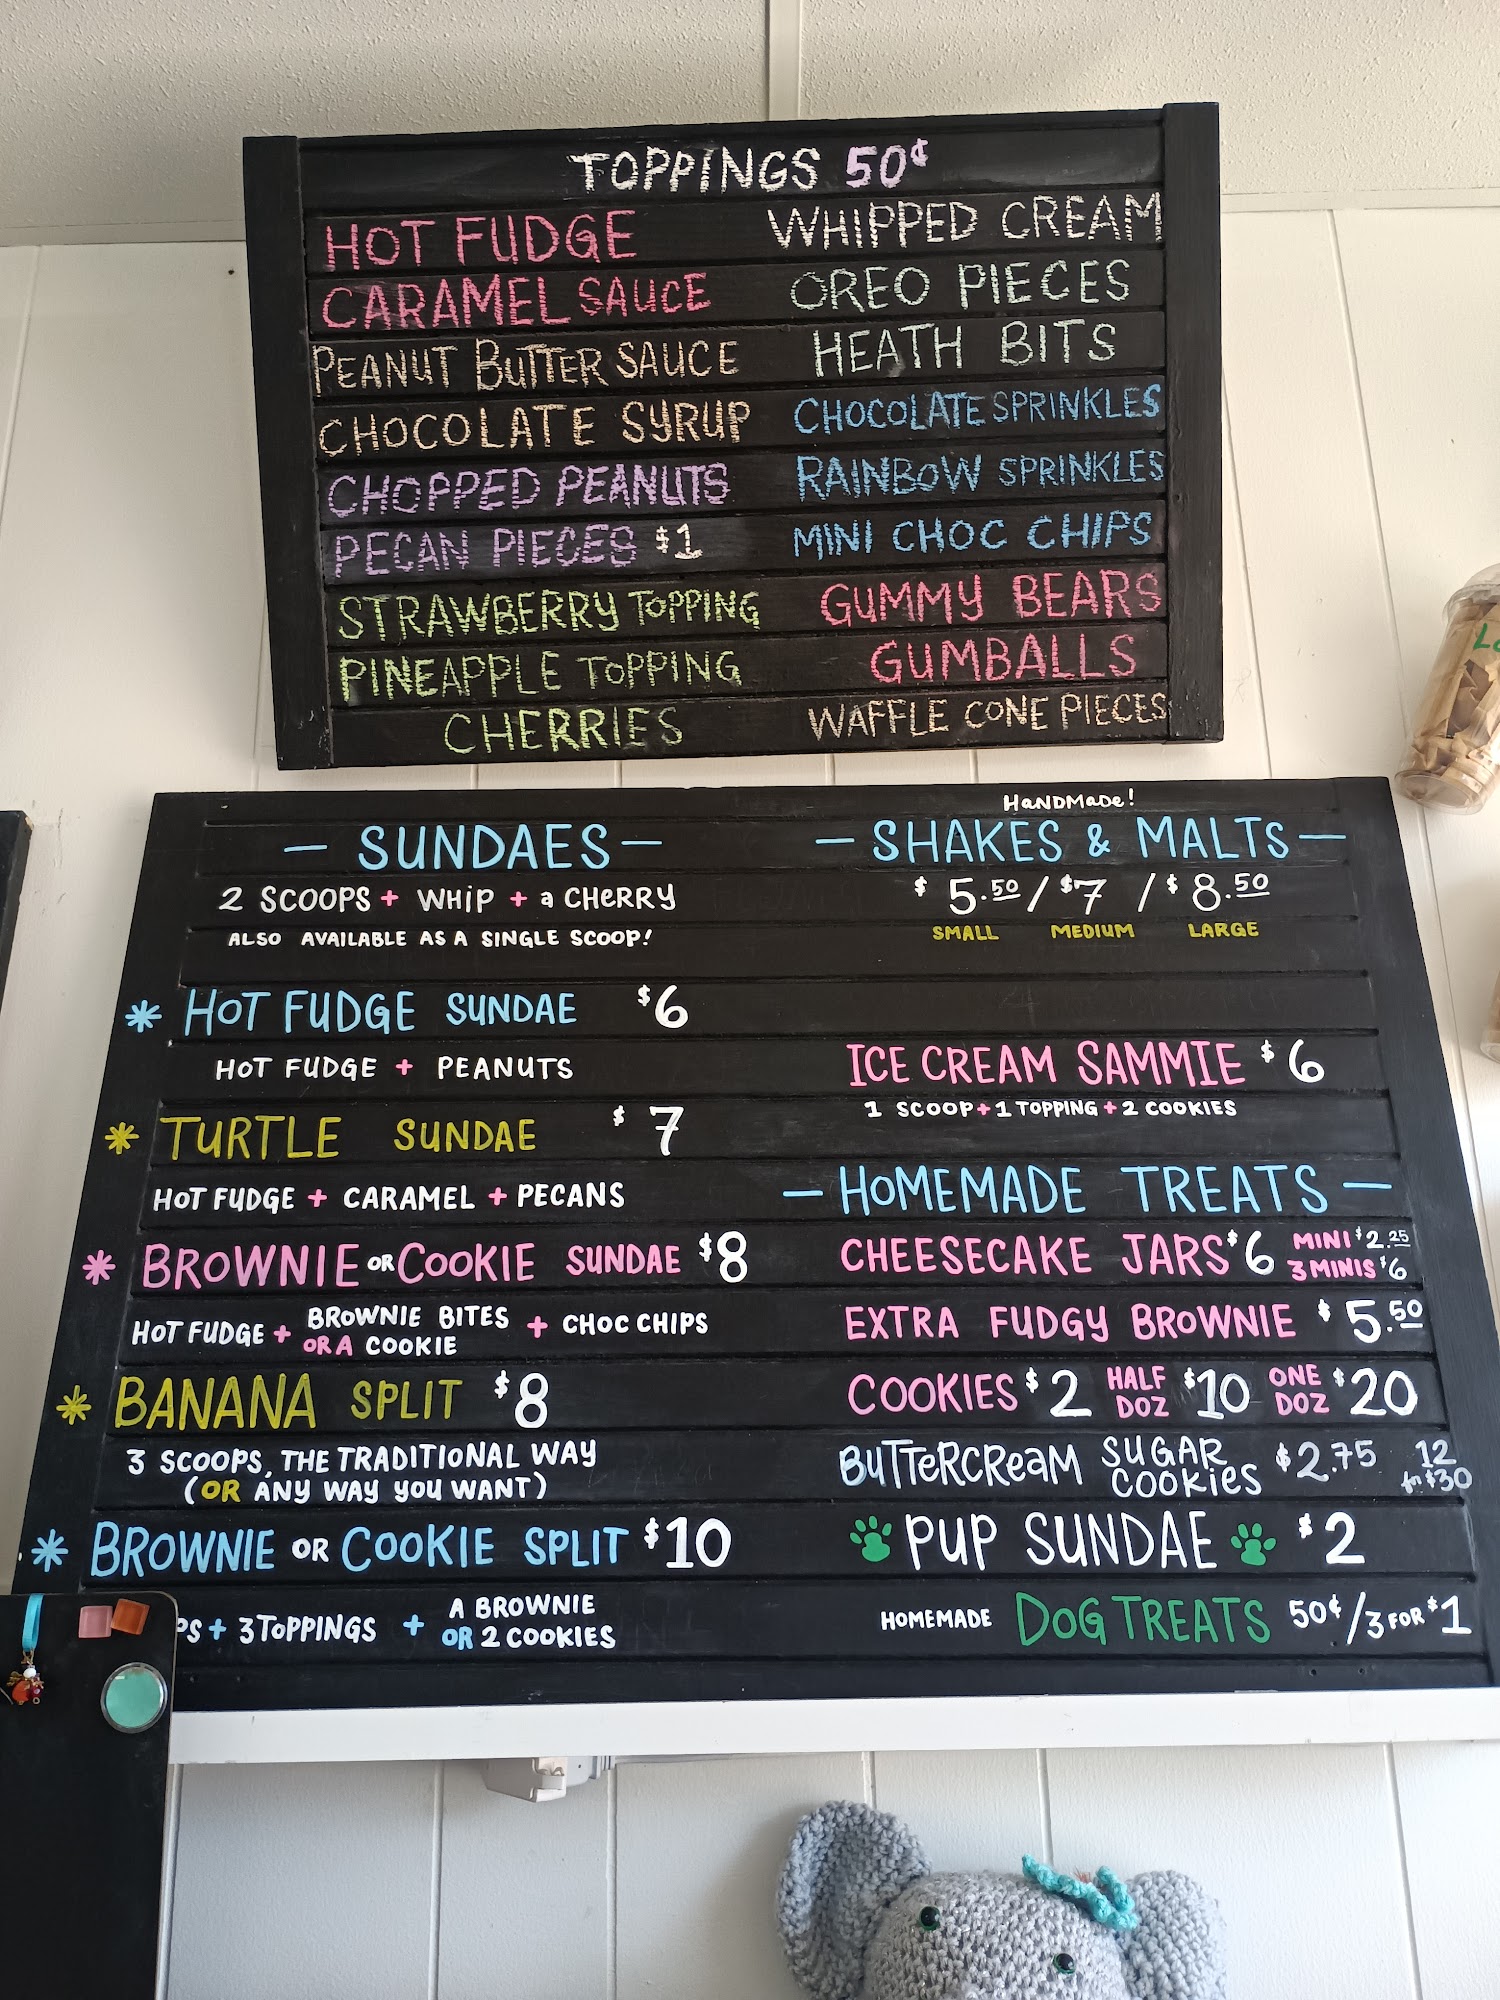 TOPPINGS 50¢
HOT FUDGE
CARAMEL SAUCE
PEANUT BUTTER SAUCE
CHOCOLATE SYRUP
CHOPPED PEANUTS
PECAN PIECES $1
STRAWBERRY TOPPING
PINEAPPLE TOPPING
CHERRIES
WHIPPED CREAM
OREO PIECES
HEATH BITS
CHOCOLATE SPRINKLES
RAINBOW SPRINKLES
MINI CHOC CHIPS
GUMMY BEARS
GUMBALLS
WAFFLE CONE PIECES
— SUNDAES —
2 SCOOPS + WHIP + a CHERRY
ALSO AVAILABLE AS A SINGLE SCOOP!
* HOT FUDGE SUNDAE $6
HOT FUDGE + PEANUTS
* TURTLE SUNDAE $7
HOT FUDGE + CARAMEL + PECANS
* BROWNIE OR COOKIE SUNDAE $8
HOT FUDGE + BROWNIE BITES OR A COOKIE + CHOC CHIPS
* BANANA SPLIT $8
3 SCOOPS, THE TRADITIONAL WAY
(OR ANY WAY YOU WANT)
* BROWNIE OR COOKIE SPLIT $10
PS + 3 TOPPINGS + A BROWNIE OR 2 COOKIES
HANDMADE!
— SHAKES & MALTS —
$5.50 / $7 / $8.50
SMALL MEDIUM LARGE
ICE CREAM SAMMIE $6
1 SCOOP + 1 TOPPING + 2 COOKIES
— HOMEMADE TREATS —
CHEESECAKE JARS $6 MINI $2.25 3 MINIS $6
EXTRA FUDGY BROWNIE $5.50
COOKIES $2 HALF DOZ $10 ONE DOZ $20
BUTTERCREAM SUGAR COOKIES $2.75 12 for $30
PUP SUNDAE $2
HOMEMADE DOG TREATS 50¢/3 FOR $1